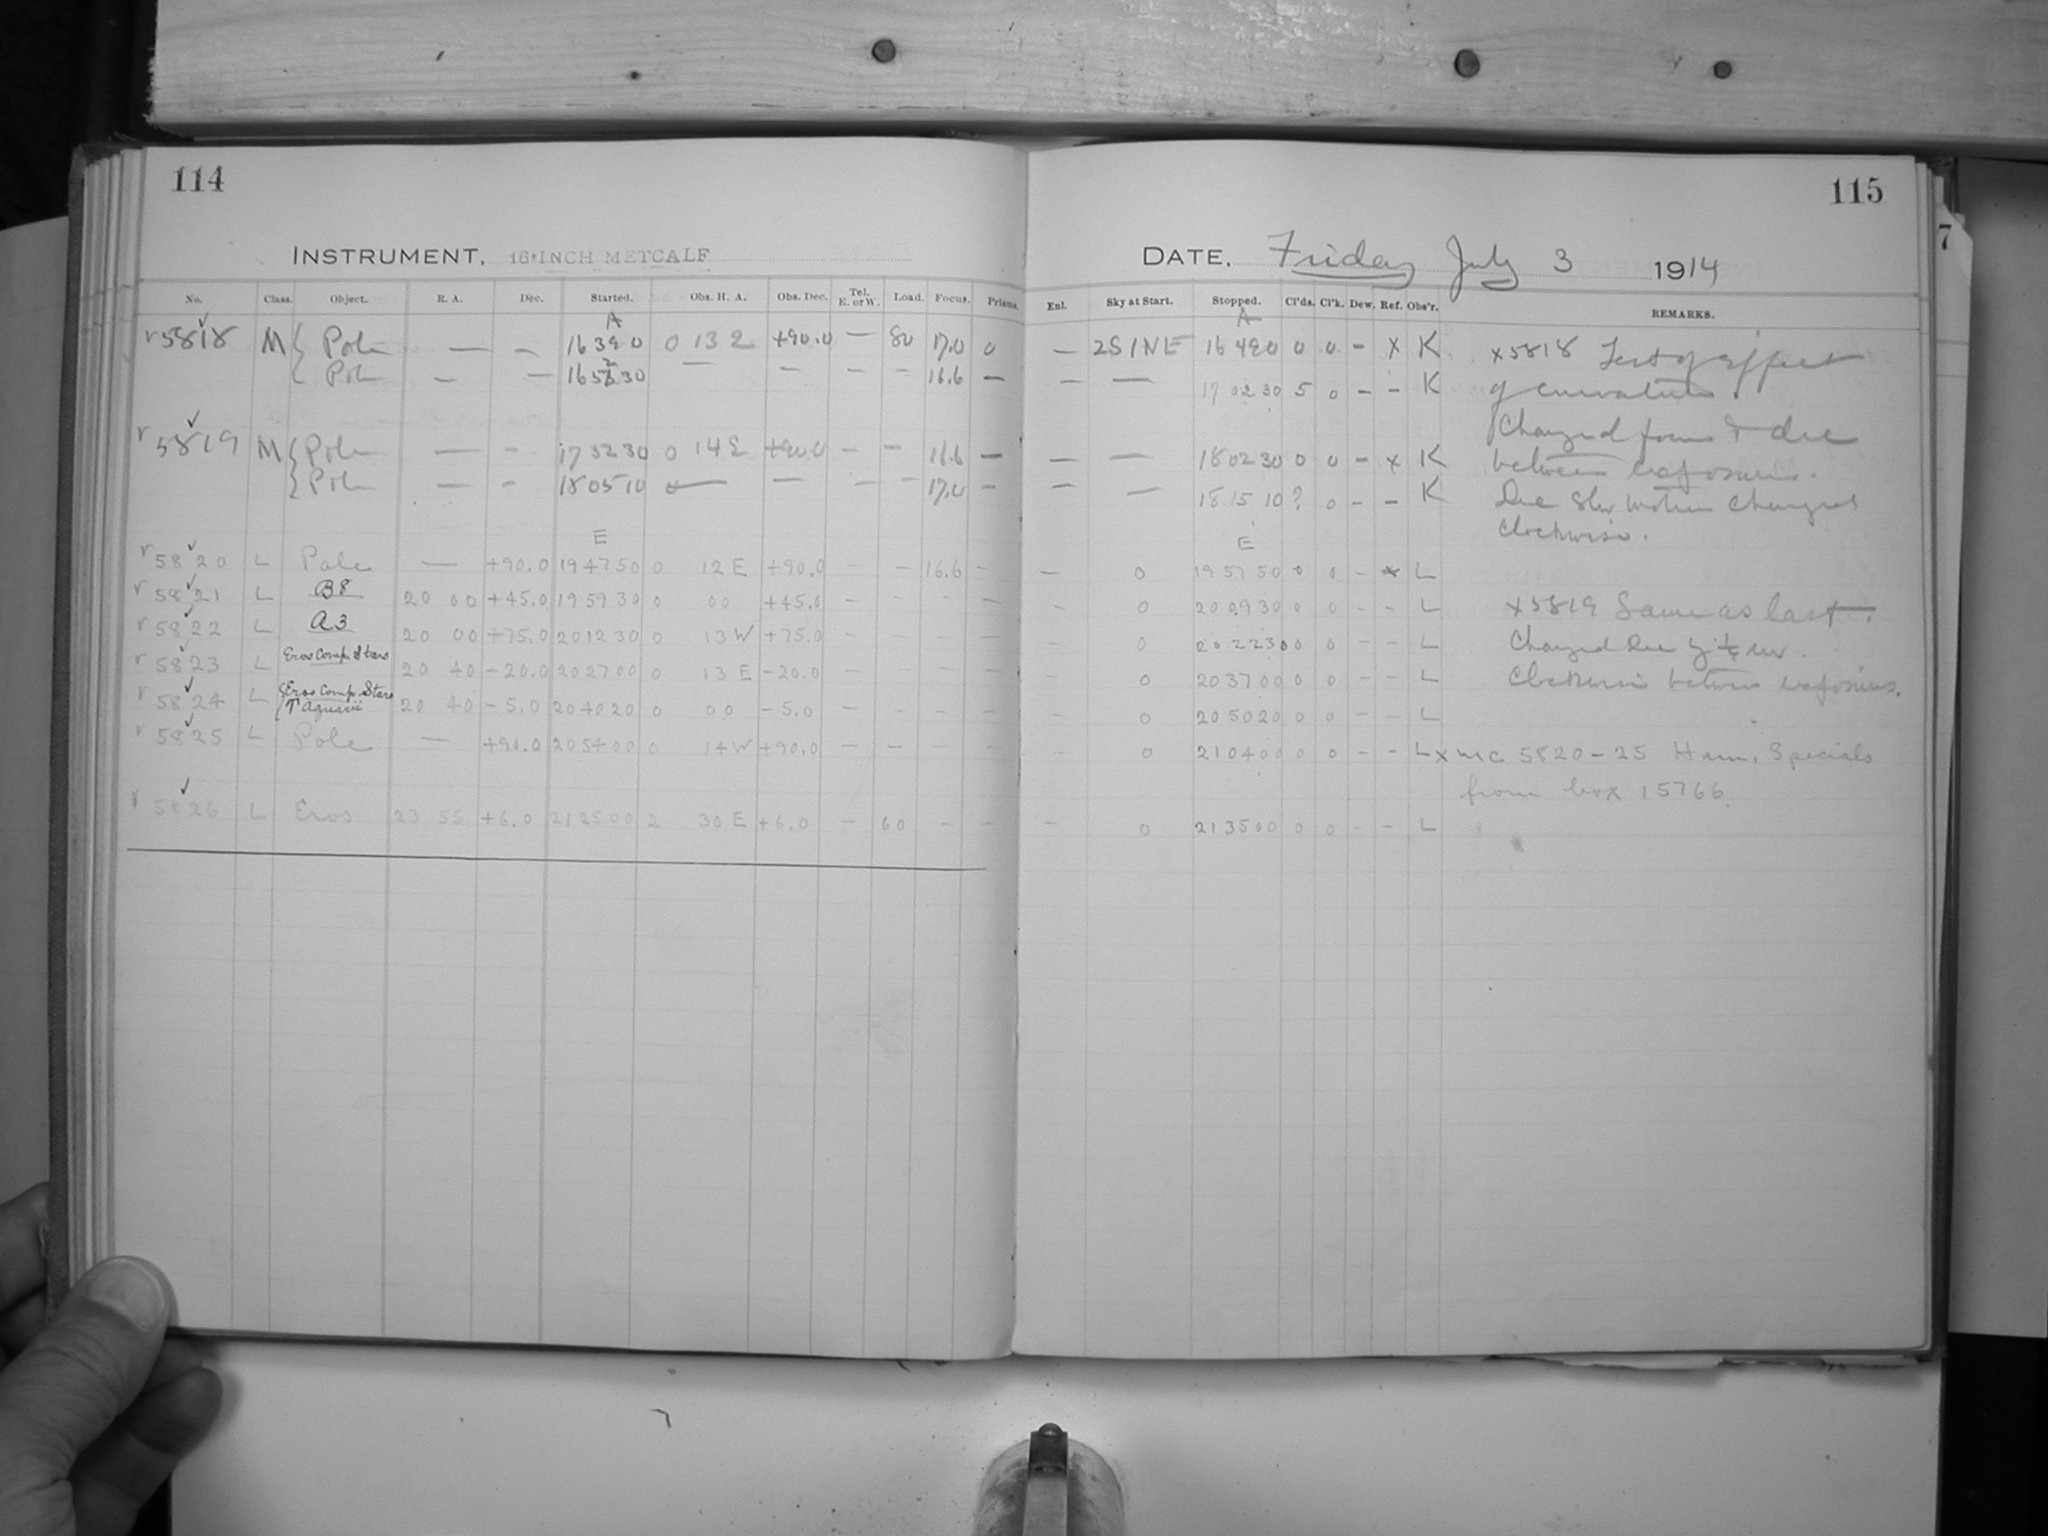 114
INSTRUMENT, 16-INCH METCALF
No. Class. Object. R. A. Dec. Started. Obs. H. A. Obs. Dec. Tel. E. or W. Load. Focus. Prisms.
A
r 5818 M { Pole — — 16 39 0 0 13 E +90.0 — 80 17.0 0
{ Pole — — 16 52 30 — — — — 16.6 —
r 5819 M { Pole — - 17 52 30 0 14 E +90.0 - - 16.6 —
{ Pole — - 18 05 10 0 — — — - 17.0 -
E
r 5820 L Pole — +90.0 19 47 50 0 12 E +90.0 - - 16.6 -
r 5821 L B8 20 00 +45.0 19 59 30 0 00 +45.0 - - - -
r 5822 L A3 20 00 +75.0 20 12 30 0 13 W +75.0 - - - -
r 5823 L Eros Comp. Stars 20 40 -20.0 20 27 00 0 13 E -20.0 - - - -
r 5824 L { Eros Comp. Stars
T Aquarii 20 40 -5.0 20 40 20 0 00 -5.0 - - - -
r 5825 L Pole — +90.0 20 54 00 0 14 W +90.0 - - - -
r 5826 L Eros 23 55 +6.0 21 25 00 2 30 E +6.0 - 60 - -
115
DATE, Friday July 3 1914
Enl. Sky at Start. Stopped. Cl'ds. Cl'k. Dew. Ref. Obs'r. REMARKS.
A
— 2S1NE 16 49 0 0 0 - x K x5818 Test of effect
— — 17 02 30 5 0 - - K of curvature.
Changed focus & dec
— — 18 02 30 0 0 - x K between exposures.
— — 18 15 10 ? 0 - - K Dec Slow motion changed
clockwise.
E
— 0 19 57 50 0 0 - x L
- 0 20 09 30 0 0 - - L x5819 Same as last.
- 0 20 22 30 0 0 - - L Changed Dec by rev.
- 0 20 37 00 0 0 - - L Clockwise between exposures.
- 0 20 50 20 0 0 - - L
- 0 21 04 00 0 0 - - L x MC 5820-25 Ham. Specials
from box 15766
- 0 21 35 00 0 0 - - L
7